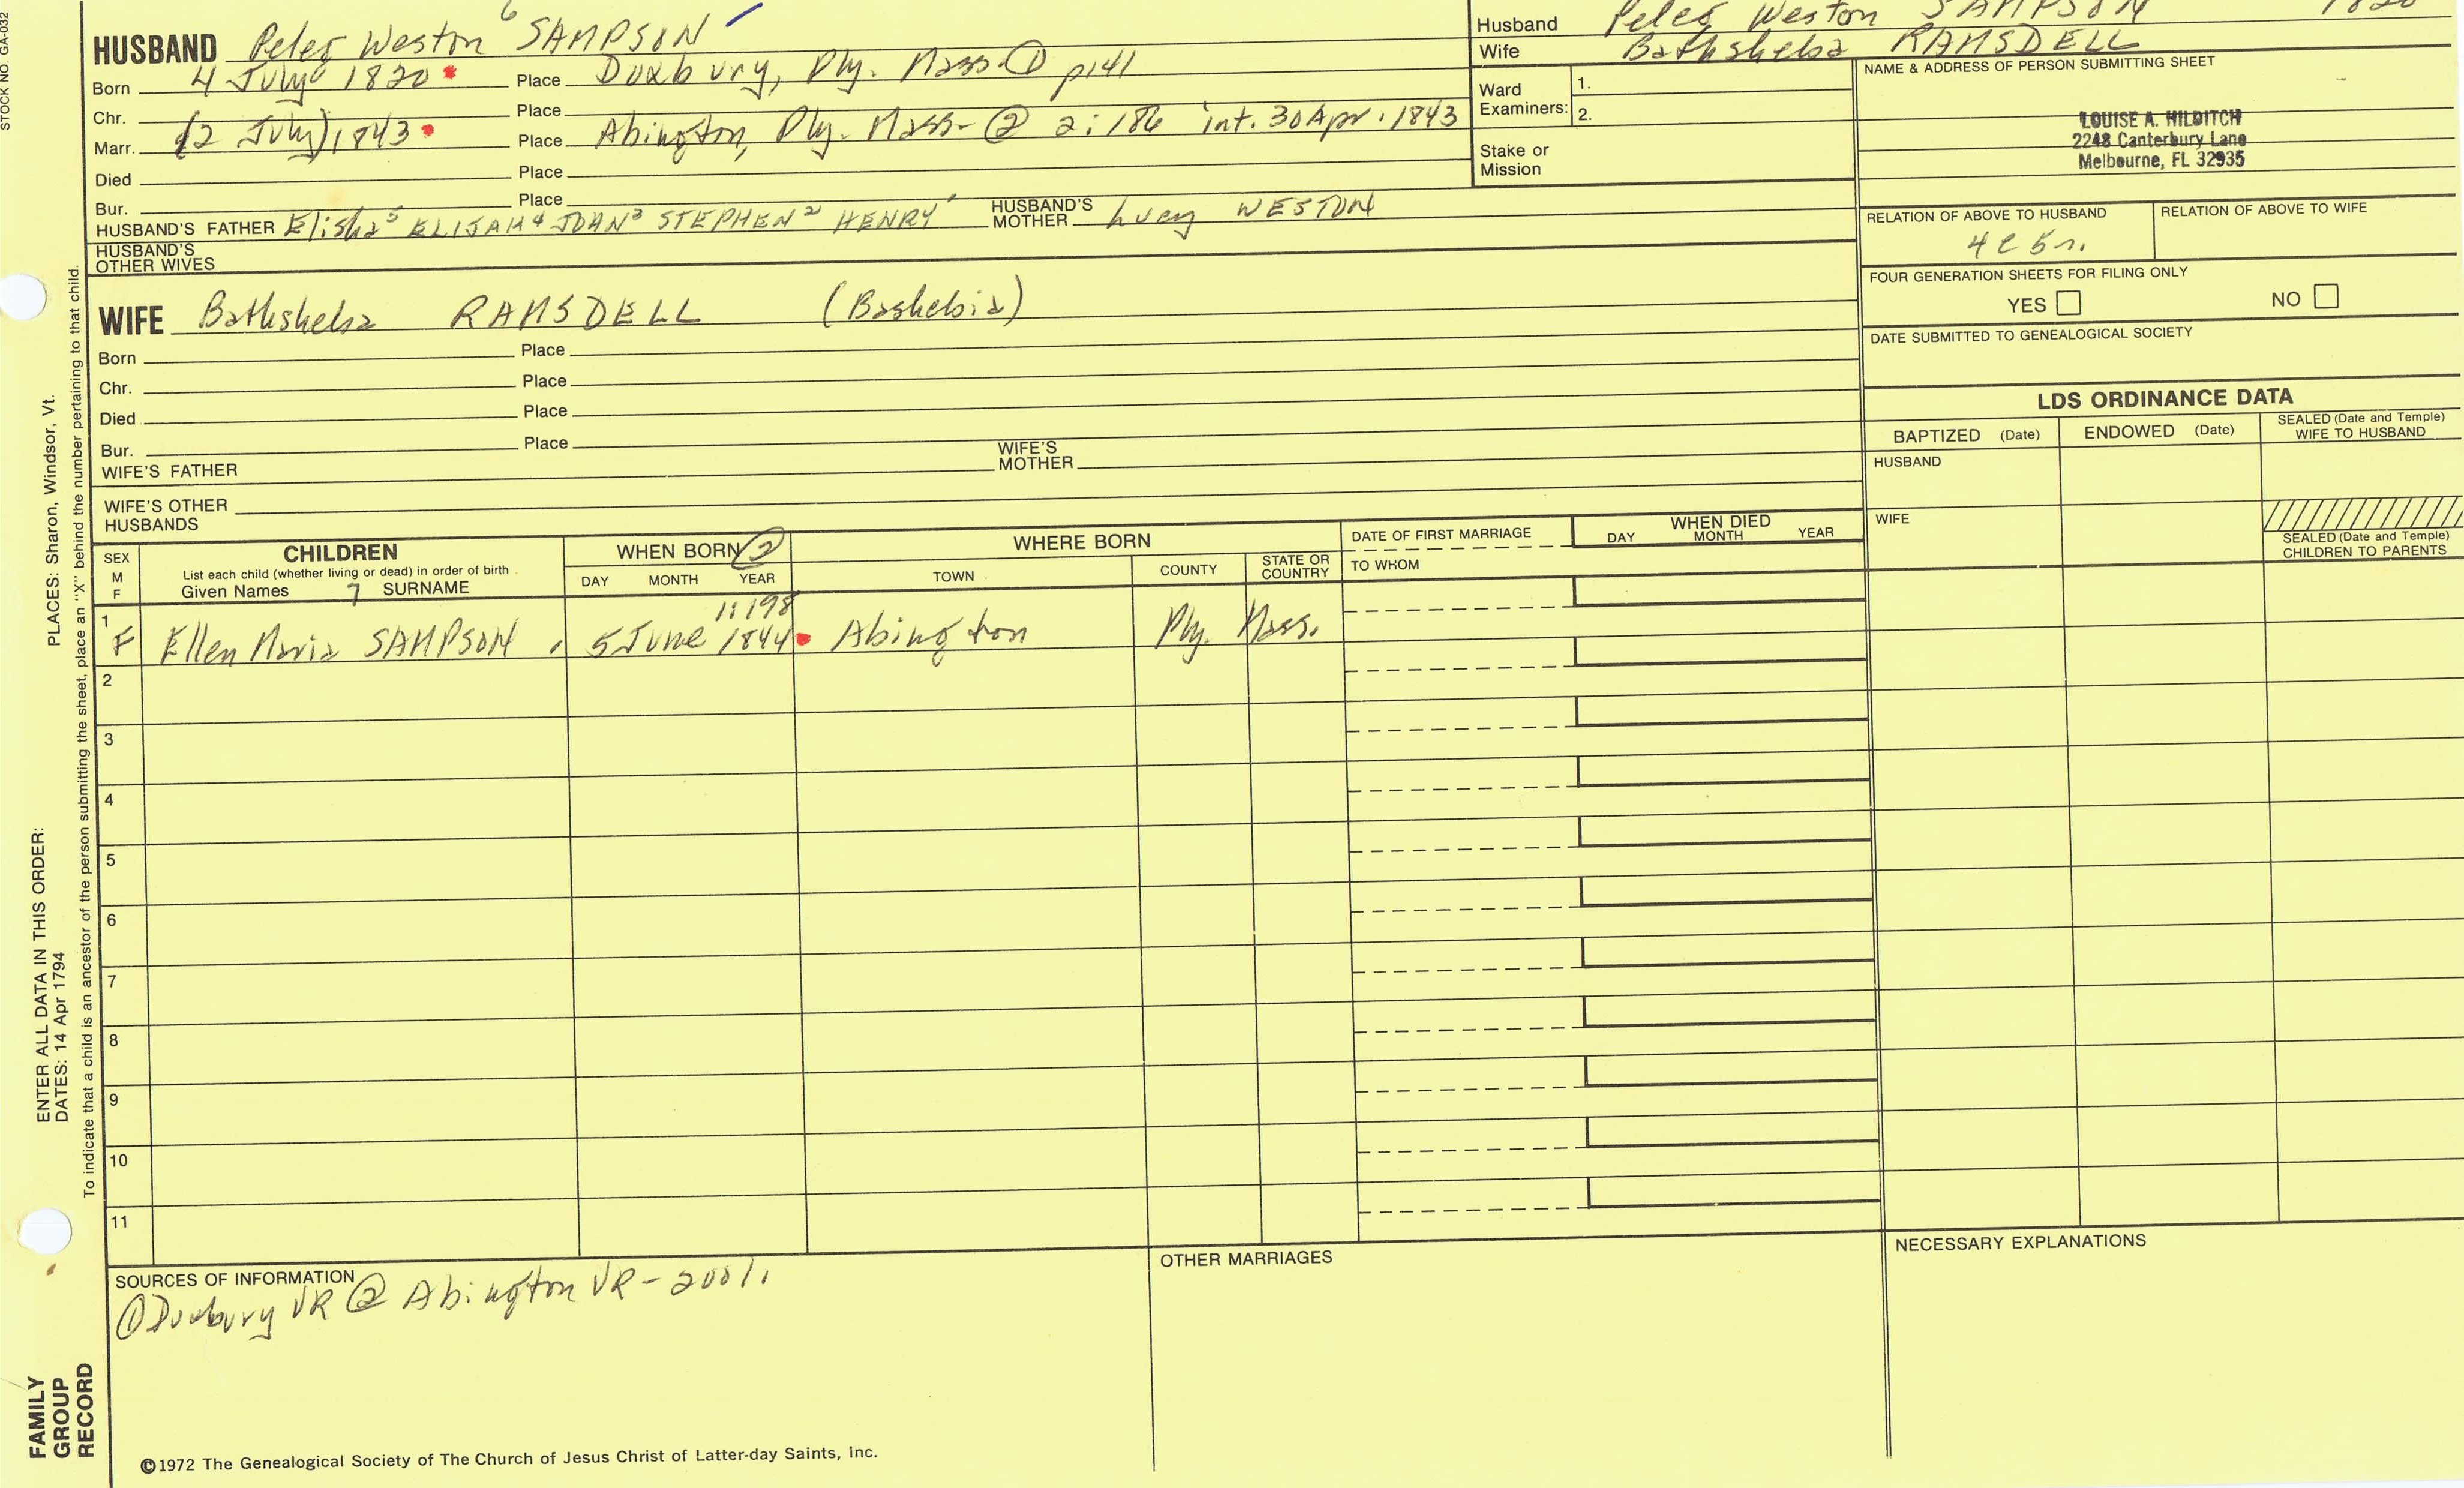 STOCK NO. GA-032
HUSBAND Peleg Weston 6 SAMPSON
Born 4 July 1820 Place Duxbury, Ply. Mass ① p141
Chr. Place
Marr. (2 July) 1843 Place Abington, Ply. Mass- ② 2:186 int. 30 Apr. 1843
Died Place
Bur. Place
HUSBAND'S FATHER Elisha5 ELIJAH4 JOHN3 STEPHEN2 HENRY1 HUSBAND'S MOTHER Lucy WESTON
HUSBAND'S OTHER WIVES
Husband Peleg Weston SAMPSON 1820
Wife Bathsheba RAMSDELL
Ward Examiners: 1.
2.
Stake or Mission
NAME & ADDRESS OF PERSON SUBMITTING SHEET
LOUISE A. HILDITCH
2248 Canterbury Lane
Melbourne, FL 32935
RELATION OF ABOVE TO HUSBAND RELATION OF ABOVE TO WIFE
4c5r.
FOUR GENERATION SHEETS FOR FILING ONLY
YES NO
DATE SUBMITTED TO GENEALOGICAL SOCIETY
WIFE Bathsheba RAMSDELL (Bashebia)
Born Place
Chr. Place
Died Place
Bur. Place
WIFE'S FATHER WIFE'S MOTHER
WIFE'S OTHER HUSBANDS
LDS ORDINANCE DATA
BAPTIZED (Date) ENDOWED (Date) SEALED (Date and Temple) WIFE TO HUSBAND
HUSBAND
WIFE
SEALED (Date and Temple)
CHILDREN TO PARENTS
SEX M F
CHILDREN
List each child (whether living or dead) in order of birth
Given Names 7 SURNAME
WHEN BORN ②
DAY MONTH YEAR
WHERE BORN
TOWN COUNTY STATE OR COUNTRY
DATE OF FIRST MARRIAGE
TO WHOM
WHEN DIED
DAY MONTH YEAR
1:198
1 F Ellen Maria SAMPSON 5 June 1844 Abington Ply. Mass.
2
3
4
5
6
7
8
9
10
11
SOURCES OF INFORMATION
① Duxbury VR ② Abington VR -
OTHER MARRIAGES
NECESSARY EXPLANATIONS
©1972 The Genealogical Society of The Church of Jesus Christ of Latter-day Saints, Inc.
FAMILY
GROUP
RECORD
ENTER ALL DATA IN THIS ORDER:
DATES: 14 Apr 1794
PLACES: Sharon, Windsor, Vt.
To indicate that a child is an ancestor of the person submitting the sheet, place an "X" behind the number pertaining to that child.